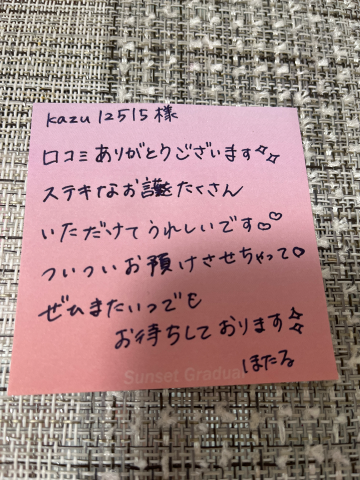 kazu12515様
口コミありがとうございます
ステキなお話をたくさん
いただけてうれしいです♡♡
ついついお預けさせちゃって♡
ぜひまたいつでも
お待ちしております
Sunset Gradua
ほたる